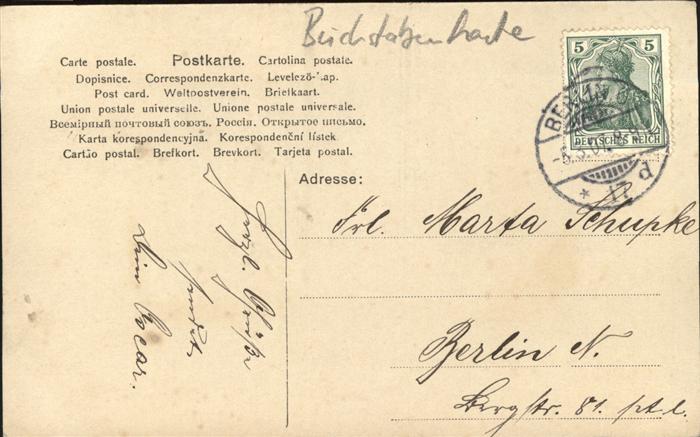 Buchstabenkarte
Carte postale. Postkarte. Cartolina postale.
Dopisnice. Correspondenzkarte. Levelező-Lap.
Post card. Weltpostverein. Briefkaart.
Union postale universelle. Unione postale universale.
Всемірный почтовый союзъ. Россія. Открытое письмо.
Karta korespondencyjna. Korespondenční lístek.
Cartão postal. Brefkort. Brevkort. Tarjeta postal.
5 5
DEUTSCHES REICH
BERLIN
* 17 d
Adresse:
Frl. Marta Schupke
Berlin N.
Bergstr. 81. pt. l.
Herzl. Grüße
sendet
Dein Oscar.